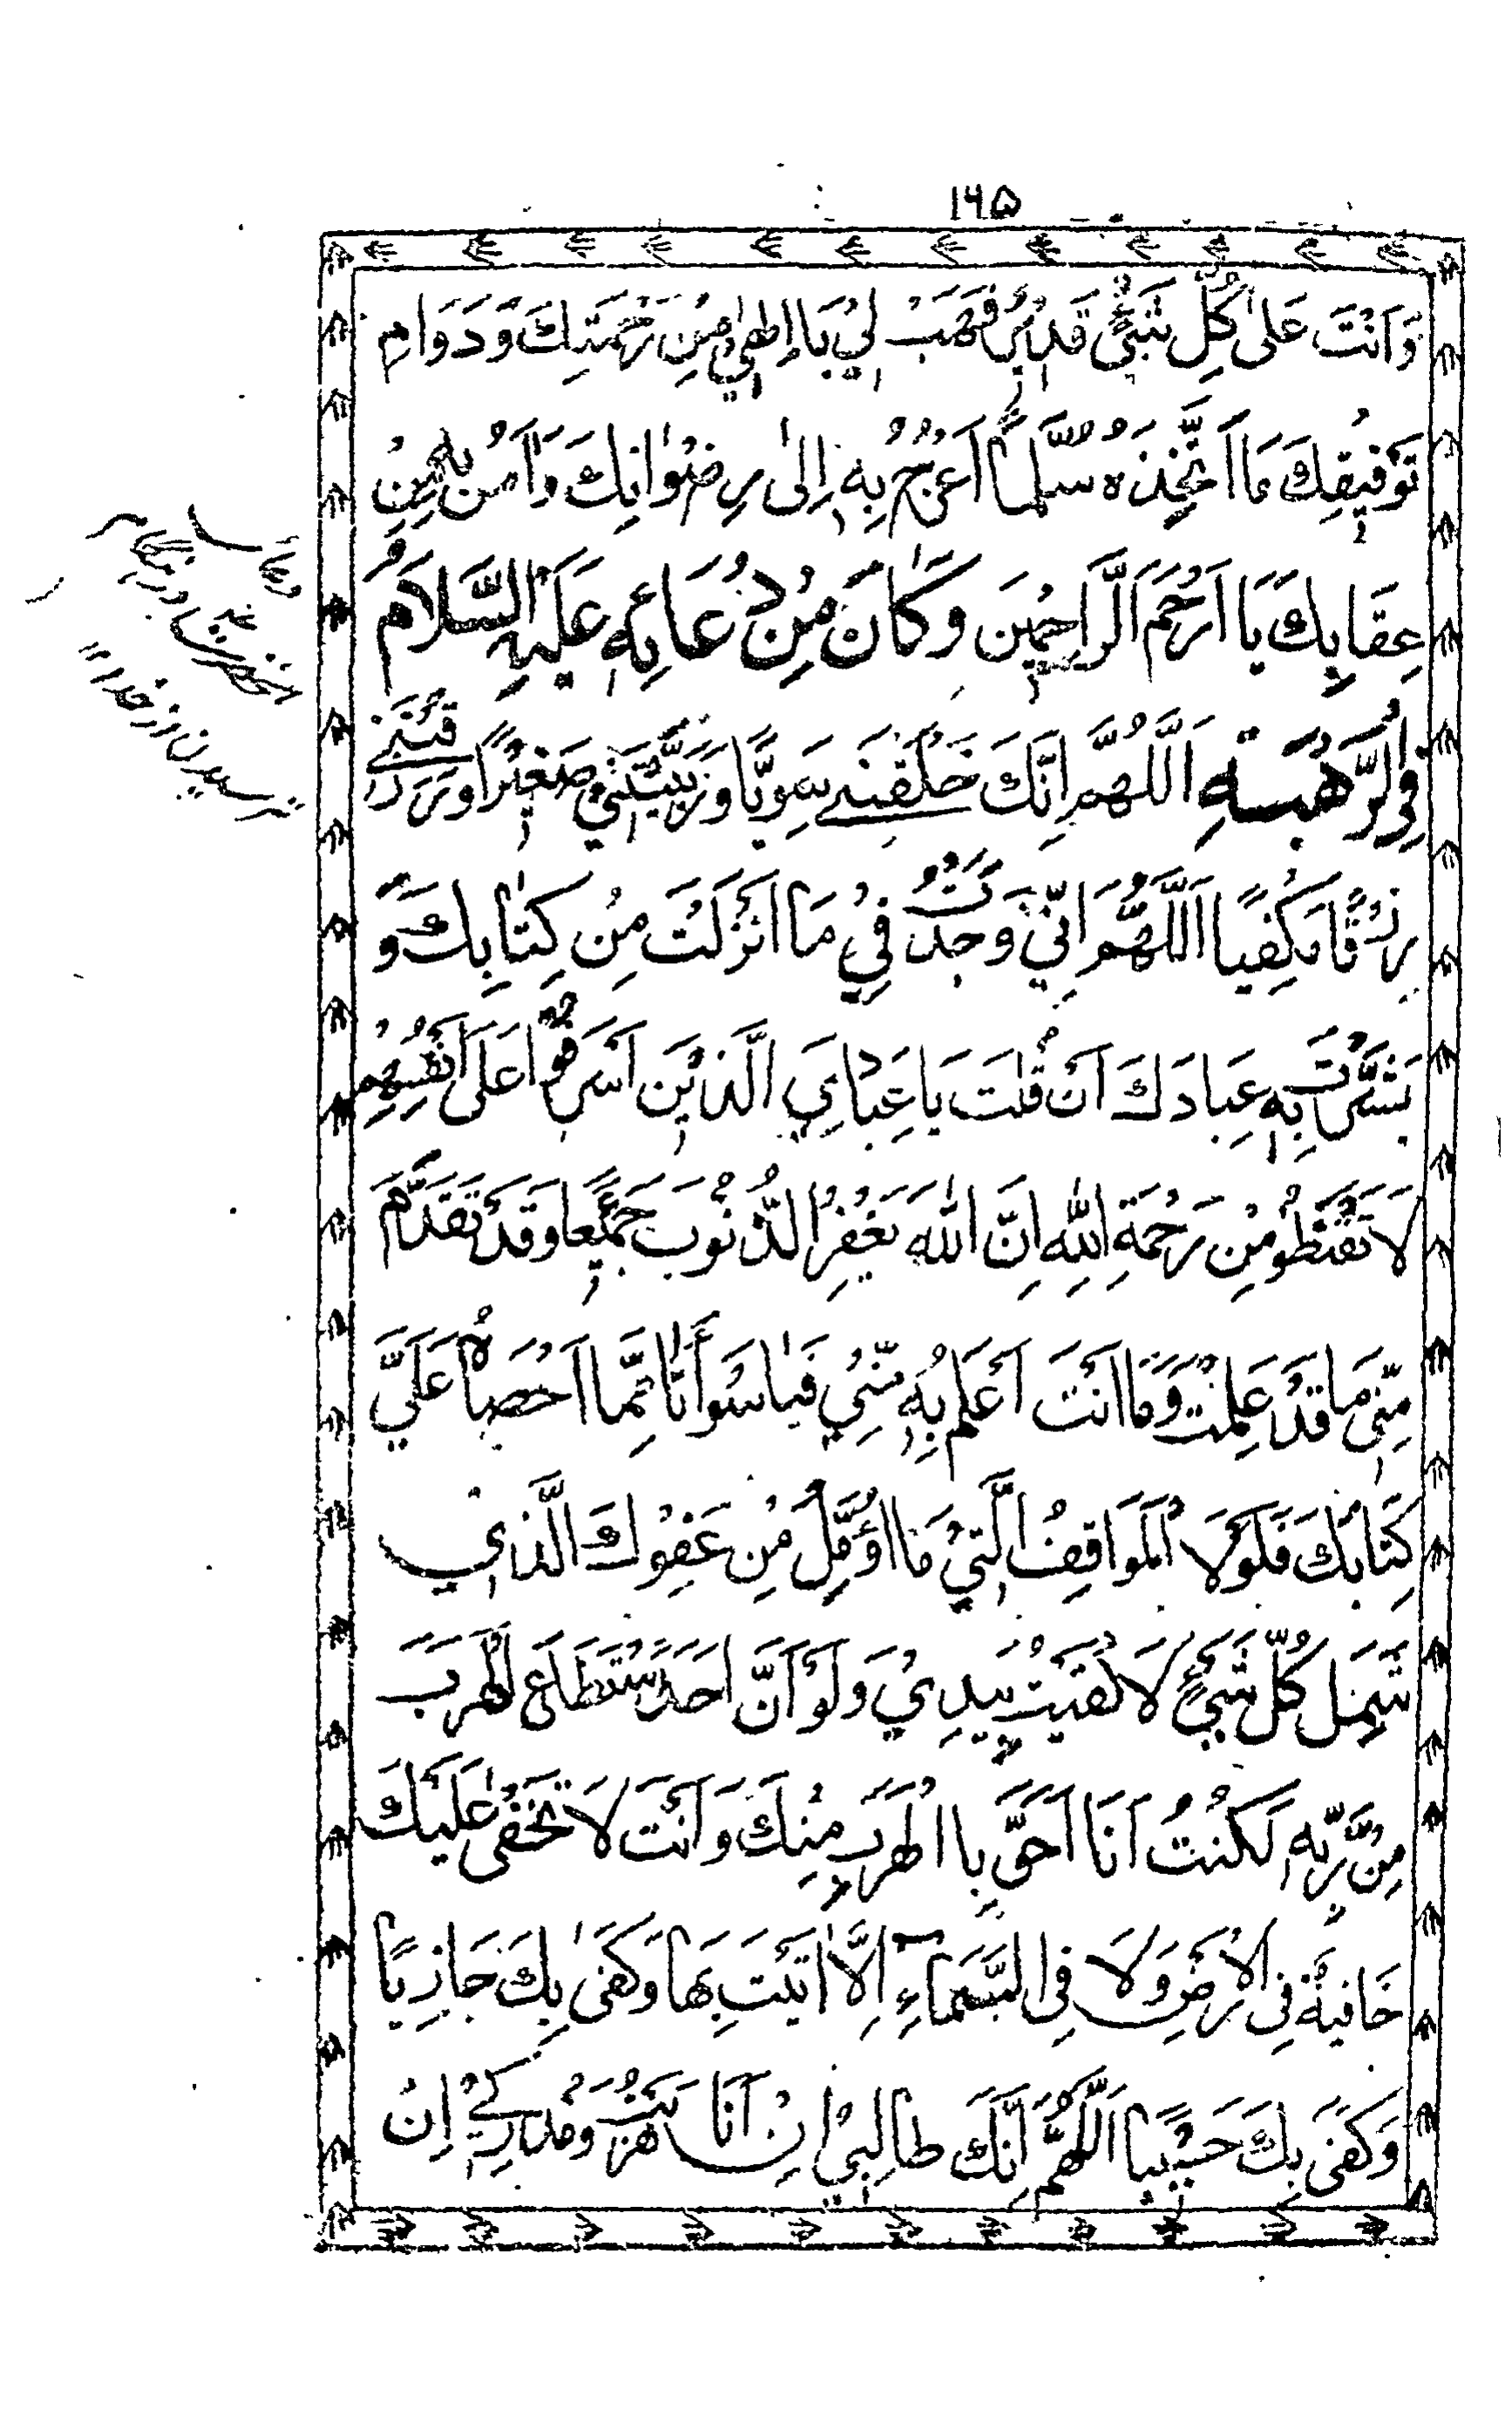 ١٦۵
وَاَنْتَ عَلىٰ كُلِّ شَيْءٍ قَدِيْرٌ فَهَبْ لِيْ يَا اِلٰهِيْ مِنْ رَحْمَتِكَ وَدَوَامِ
تَوْفِيْقِكَ مَا اَتَّخِذُهُ سُلَّمًا اَعْرُجُ بِهِ اِلىٰ رِضْوَانِكَ وَاٰمَنُ بِهِ مِنْ
عِقَابِكَ يَا اَرْحَمَ الرَّاحِمِيْنَ وَكَانَ مِنْ دُعَائِهِ عَلَيْهِ السَّلَامُ
فِي الرَّهْبَةِ اَللّٰهُمَّ اِنَّكَ خَلَقْتَنِي سَوِيًّا وَرَبَّيْتَنِي صَغِيْرًا وَرَزَقْتَنِي
رِزْقًا مَكْفِيًّا اَللّٰهُمَّ اِنِّيْ وَجَدْتُ فِيْ مَا اَنْزَلْتَ مِنْ كِتَابِكَ وَ
بَشَّرْتَ بِهِ عِبَادَكَ اَنْ قُلْتَ يَا عِبَادِيَ الَّذِيْنَ اَسْرَفُوْا عَلىٰ اَنْفُسِهِمْ
لَا تَقْنَطُوْ مِنْ رَحْمَةِ اللّٰهِ اِنَّ اللّٰهَ يَغْفِرُ الذُّنُوْبَ جَمِيْعًا وَقَدْ تَقَدَّمَ
مِنِّي مَا قَدْ عَلِمْتَ وَمَا اَنْتَ اَعْلَمُ بِهِ مِنِّيْ فَيَا سَوْأَتَا مِمَّا اَحْصَاهُ عَلَيَّ
كِتَابُكَ فَلَوْلَا الْمَوَاقِفُ الَّتِيْ مَا اُؤَمِّلُ مِنْ عَفْوِكَ الَّذِي
شَمِلَ كُلَّ شَيْءٍ لَاَلْقَيْتُ بِيَدِيْ وَلَوْ اَنَّ اَحَدًا سْتَطَاعَ الْهَرَبَ
مِنْ رَبِّهِ لَكُنْتُ اَنَا اَحَقَّ بِاالْهَرَبِ مِنْكَ وَاَنْتَ لَا تَخْفىٰ عَلَيْكَ
خَافِيَةٌ فِي الْاَرْضِ وَلَا فِي السَّمَاءِ اِلَّا اٰتَيْتَ بِهَا وَكَفىٰ بِكَ جَازِيًا
وَكَفىٰ بِكَ حَسِيْبًا اَللّٰهُمَّ اِنَّكَ طَالِبِيْ اِنْ اَنَا هَرَبْتُ وَمُدْرِكِيْ اِنْ